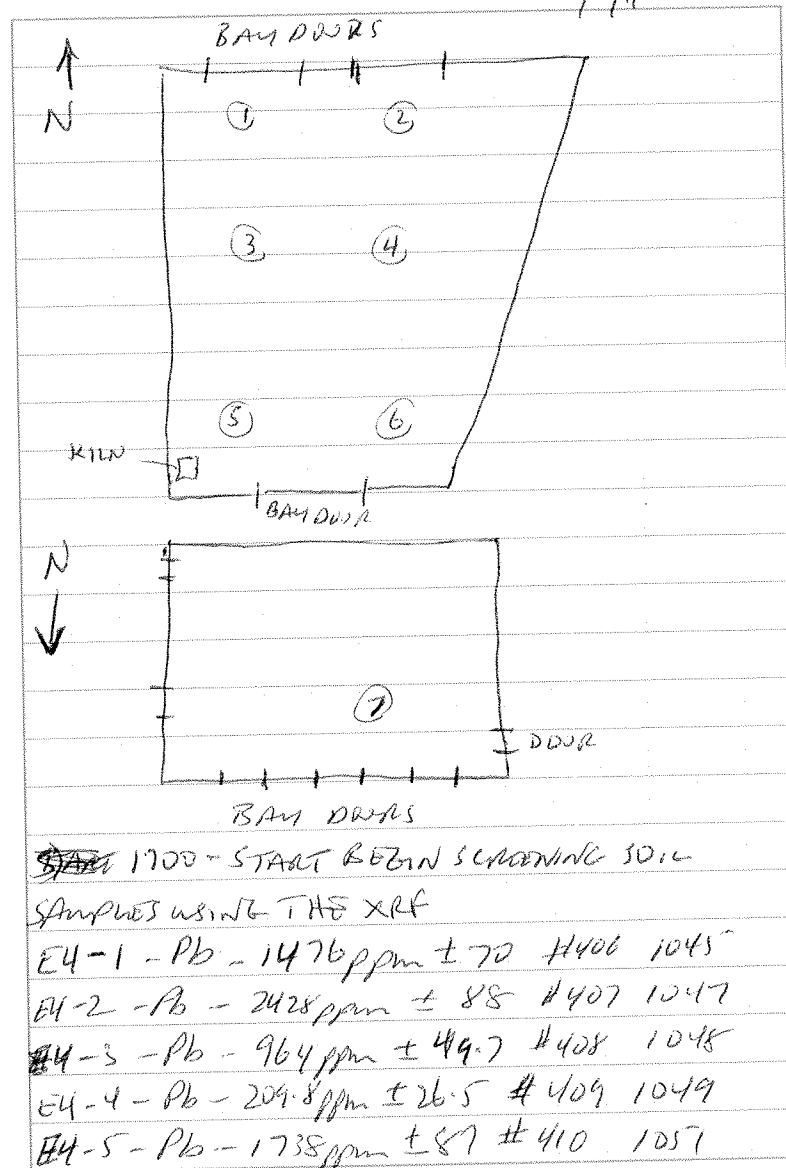 BAY DOORS
N
1 2
3 4
5 6
KILN
BAY DOOR
N
7
DOOR
BAY DOORS
1700 - START BEGIN SCREENING SOIL
SAMPLES USING THE XRF
E4-1 - Pb - 1476 ppm ± 70 #406 1045
E4-2 - Pb - 2428 ppm ± 88 #407 1047
E4-3 - Pb - 964 ppm ± 49.7 #408 1048
E4-4 - Pb - 209.8 ppm ± 26.5 #409 1049
E4-5 - Pb - 1738 ppm ± 87 #410 1051